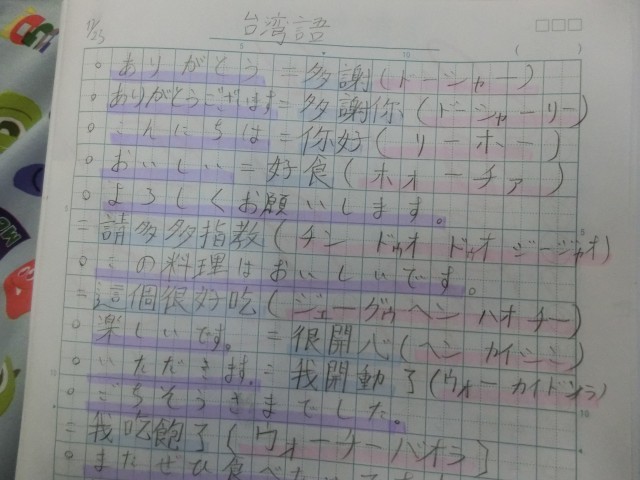 11/23
台湾語
。ありがとう = 多謝(ドーシャー)
。ありがとうございます = 多謝你(ドーシャーリー)
。こんにちは = 你好(リーホー)
。おいしい = 好食(ホォーチァ)
。よろしくお願いします。
= 請多多指教(チン ドゥオ ドゥオ ジージャオ)
。この料理はおいしいです。
= 這個很好吃(ジェーグゥ ヘン ハオ チー)
。楽しいです。 = 很開心(ヘン カイシン)
。いただきます。 = 我開動了(ウォー カイドンラ)
。ごちそうさまでした。
= 我吃飽了(ウォーチーバオラ)
。またぜひ食べた